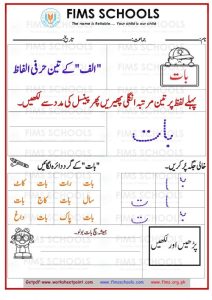 FIMS SCHOOLS
The name is Reliable... Your child is our child
نام: جماعت: تاریخ:
"الف" کے تین حرفی الفاظ
بات
پہلے لفظ پر تین مرتبہ انگلی پھیریں پھر پینسل کی مدد سے لکھیں۔
بات
"بات" کے گرد دائرہ لگائیں
خالی جگہ پُر کریں۔
بات رات بات کات
سال بات کاج بات
بات پاک بات داغ
ہمیشہ سچ بات بولو۔
پڑھیں اور لکھیں
Getpdf www.worksheetpoint.com www.fimsschools.com www.fims.org.pk